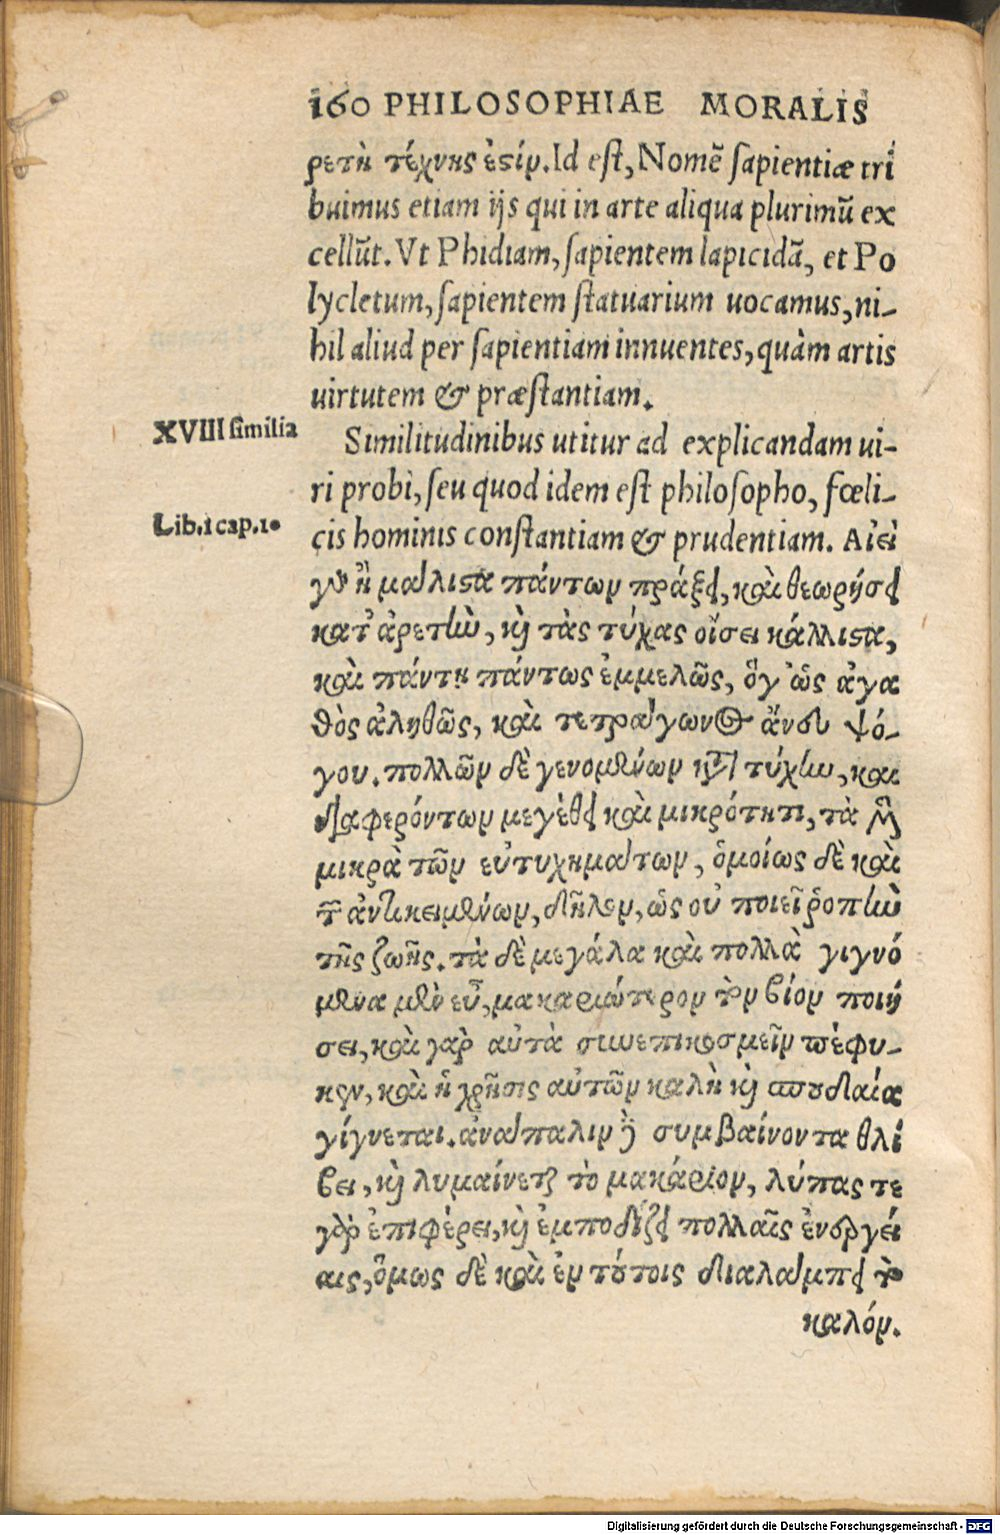 160 PHILOSOPHIAE MORALIS
ρετὴ τέχνης ἐστίν. Id est, Nomē sapientiæ tri
buimus etiam ijs qui in arte aliqua plurimū ex
cellūt. Vt Phidiam, sapientem lapicidā, et Po
lycletum, sapientem statuarium uocamus, ni-
hil aliud per sapientiam innuentes, quàm artis
uirtutem & præstantiam.
XVIII similia
Similitudinibus utitur ad explicandam ui-
ri probi, seu quod idem est philosopho, fœli-
Lib.1 cap.10
cis hominis constantiam & prudentiam. Αἰεὶ
γὰρ ἢ μάλιστα πάντων πράξει, καὶ θεωρήσει
κατ' ἀρετὴν, καὶ τὰς τύχας οἴσει κάλλιστα,
καὶ πάντη πάντως ἐμμελῶς, ὅγ' ὡς ἀγα
θὸς ἀληθῶς, καὶ τετράγωνος ἄνευ ψό-
γου. πολλῶν δὲ γενομένων κατὰ τύχην, καὶ
διαφερόντων μεγέθει καὶ μικρότητι, τὰ μὲν
μικρὰ τῶν εὐτυχημάτων, ὁμοίως δὲ καὶ
τῶν ἀντικειμένων, δῆλον, ὡς οὐ ποιεῖ ῥοπὴν
τῆς ζωῆς. τὰ δὲ μεγάλα καὶ πολλὰ γιγνό
μενα μὲν εὖ, μακαριώτερον τὸν βίον ποιή
σει, καὶ γὰρ αὐτὰ συνεπικοσμεῖν πέφυ-
κεν, καὶ ἡ χρῆσις αὐτῶν καλὴ καὶ σπουδαία
γίγνεται. ἀνάπαλιν δὲ συμβαίνοντα θλί
βει, καὶ λυμαίνεται τὸ μακάριον, λύπας τε
γὰρ ἐπιφέρει, καὶ ἐμποδίζει πολλαῖς ἐνεργεί
αις, ὅμως δὲ καὶ ἐν τούτοις διαλάμπει τὸ
καλόν.
Digitalisierung gefördert durch die Deutsche Forschungsgemeinschaft - DFG